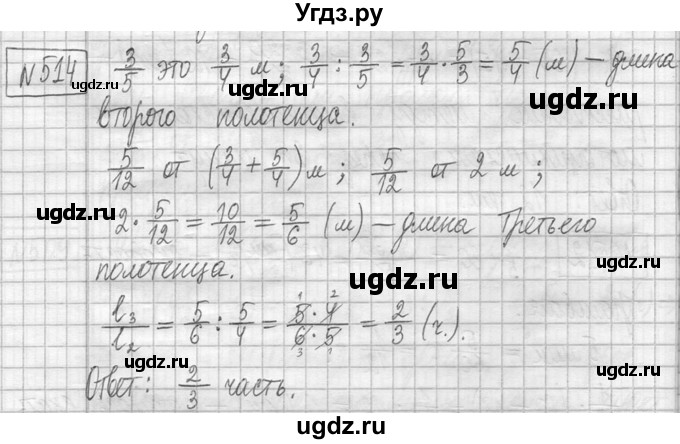 Угдз.ру
№514 3/5 это 3/4 м; 3/4 : 3/5 = 3/4 · 5/3 = 5/4 (м) – длина
второго полотенца.
ugdz.ru ugdz.ru
5/12 от (3/4 + 5/4) м; 5/12 от 2 м;
ugdz.ru ugdz.ru
2 · 5/12 = 10/12 = 5/6 (м) – длина третьего
полотенца.
ugdz.ru
l₃/l₂ = 5/6 : 5/4 = 5 · 4/6 · 5 = 2/3 (ч.).
ugdz.ru ugdz.ru
Ответ: 2/3 часть.
ugdz.ru